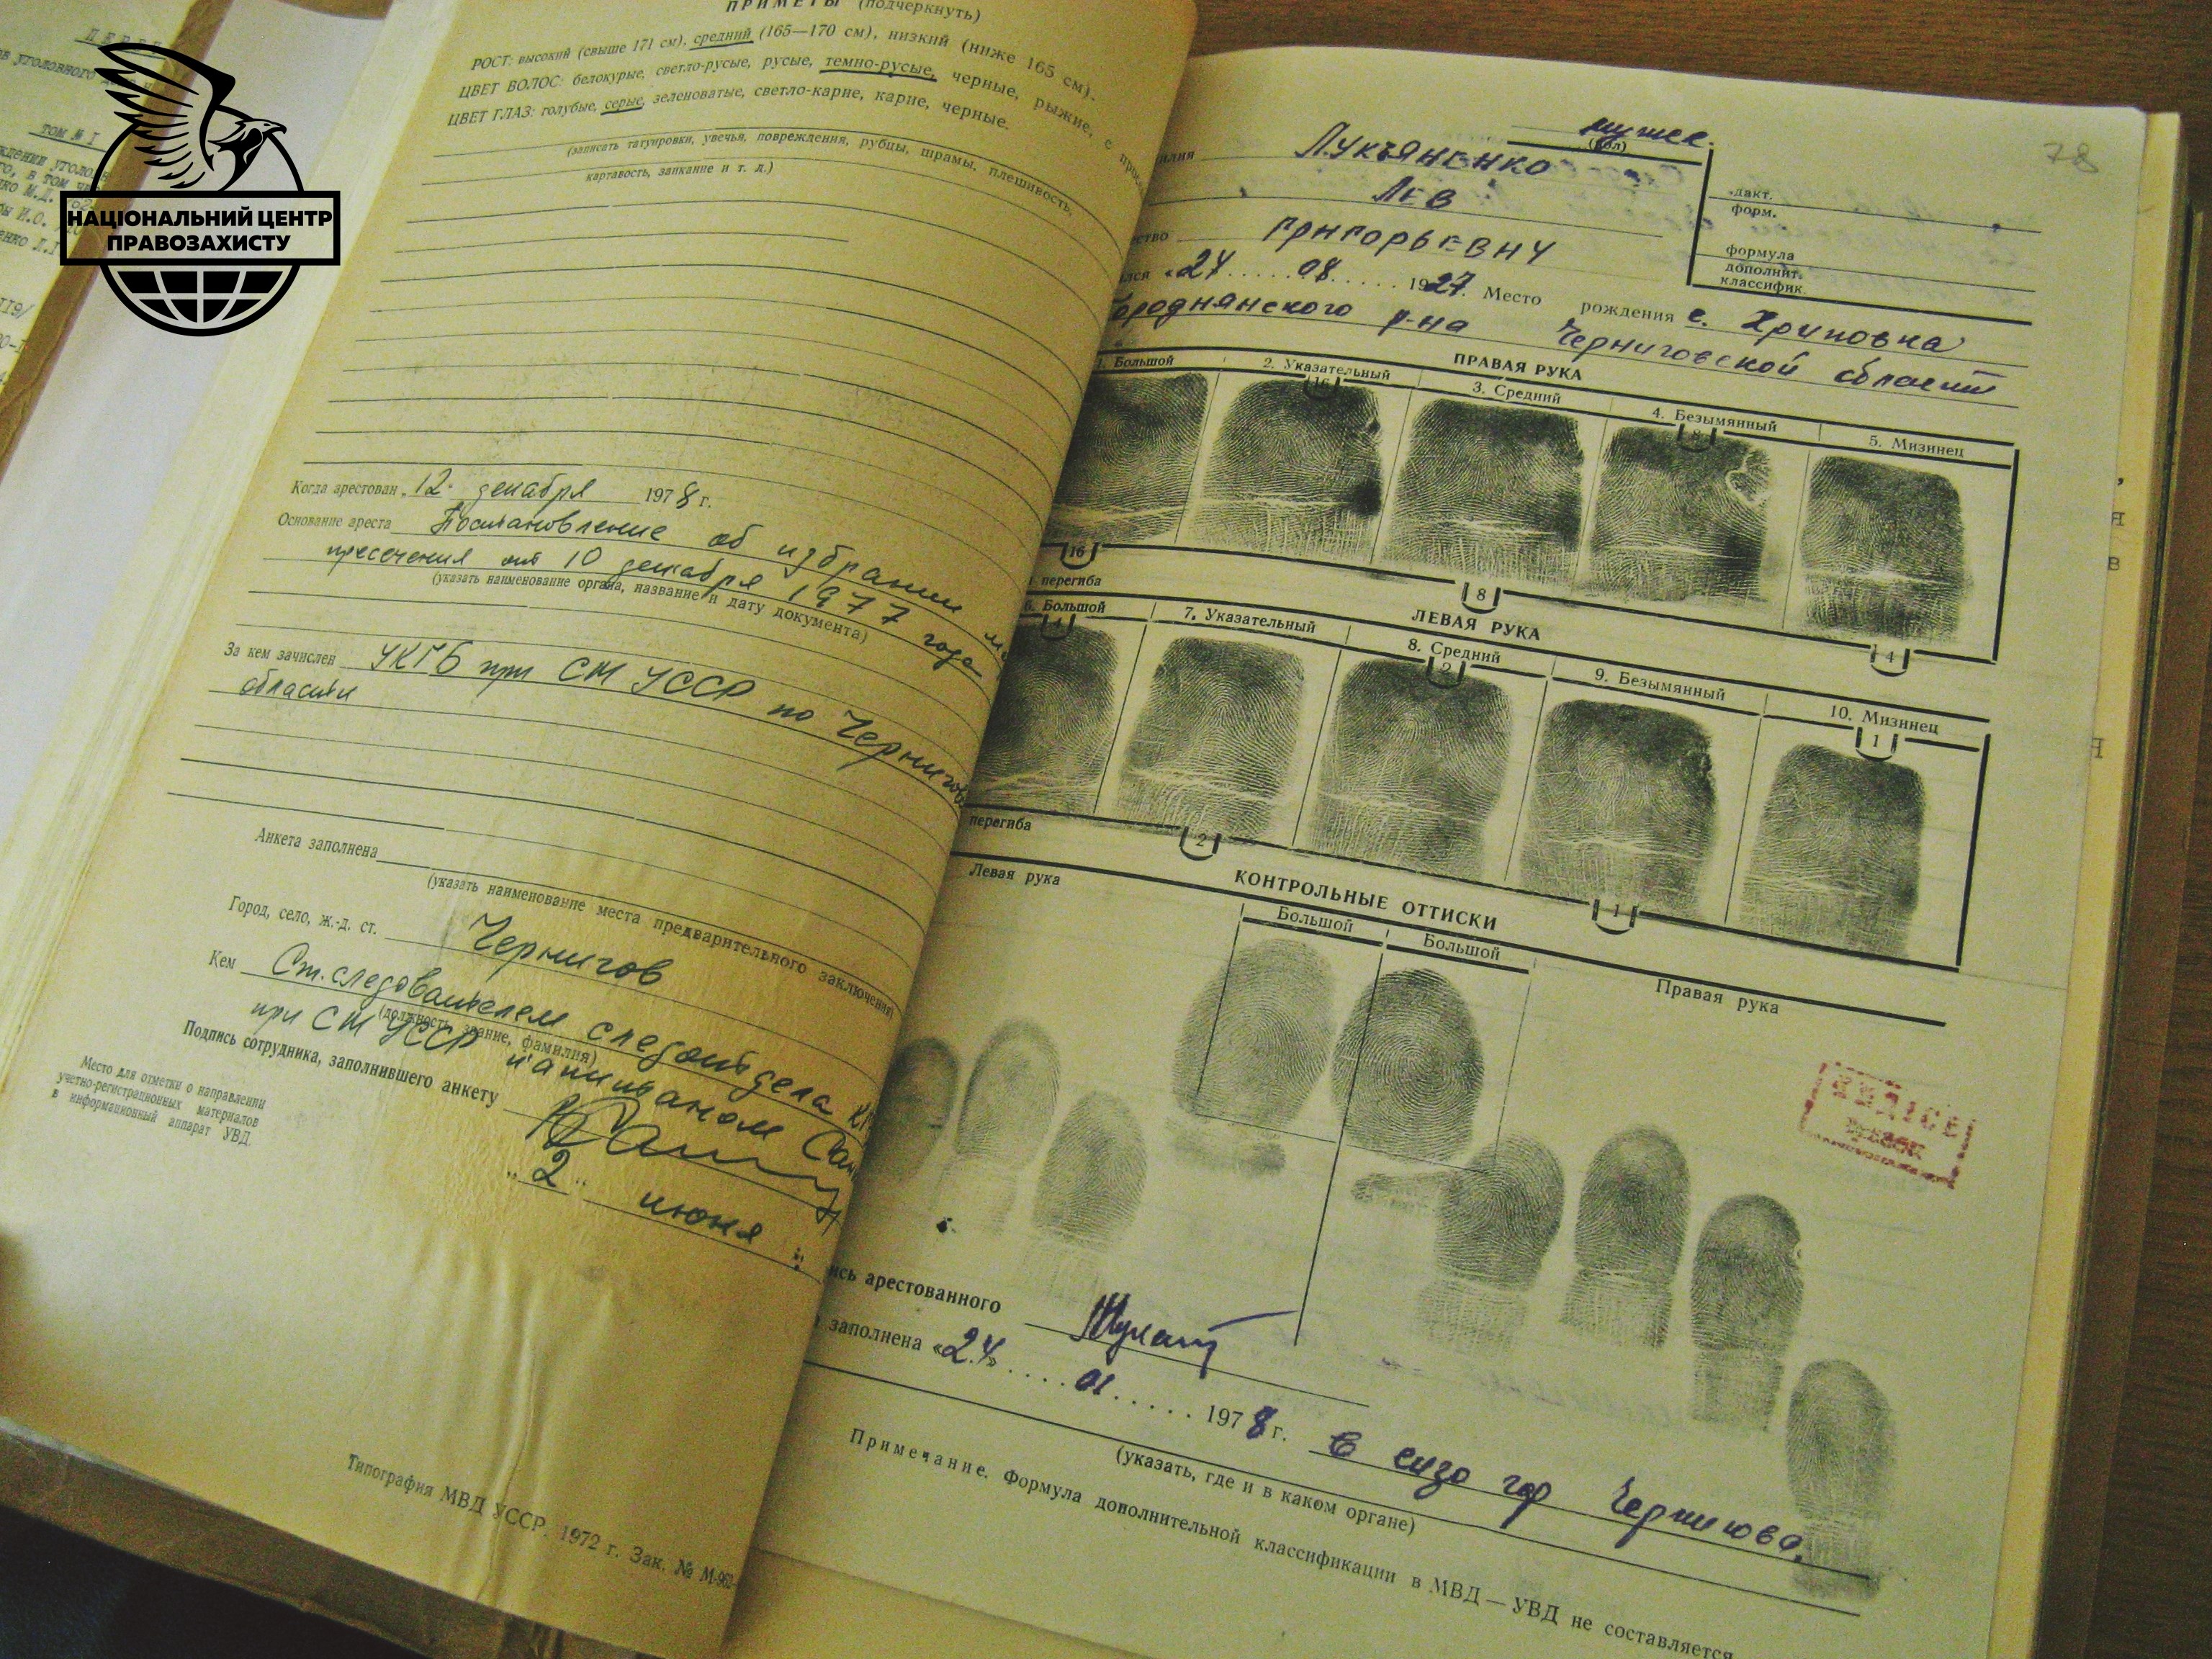 НАЦІОНАЛЬНИЙ ЦЕНТР
ПРАВОЗАХИСТУ
том № I
ПРИМЕТЫ (подчеркнуть)
РОСТ: высокий (свыше 171 см), средний (165—170 см), низкий (ниже 165 см).
ЦВЕТ ВОЛОС: белокурые, светло-русые, русые, темно-русые, черные, рыжие,
ЦВЕТ ГЛАЗ: голубые, серые, зеленоватые, светло-карие, карие, черные.
(записать татуировки, увечья, повреждения, рубцы, шрамы, плешивость,
картавость, заикание и т. д.)
Когда арестован 12 декабря 1978 г.
Основание ареста Постановление об избрании
пресечения от 10 декабря 1977 года
(указать наименование органа, название и дату документа)
За кем зачислен УКГБ при СМ УССР по Чернигов
области
Анкета заполнена
(указать наименование места предварительного заключения)
Город, село, ж.-д. ст. Чернигов
Кем Ст. следователем следотдела
(должность, звание, фамилия)
при СМ УССР капитаном
Подпись сотрудника, заполнившего анкету
"2" июня
Место для отметки о направлении
учетно-регистрационных материалов
в информационный аппарат УВД.
Типография МВД УССР. 1972 г. Зак. № М-962
78
мужск.
(пол)
Лукьяненко
Лев
Григорьевич
«24.....08.....1927. Место рождения с. Хриповка
Городнянского р-на Черниговской области
дакт.
форм.
формула
дополнит.
классифик.
ПРАВАЯ РУКА
1. Большой
2. Указательный
3. Средний
4. Безымянный
5. Мизинец
16
8
16
8
4
перегиба
ЛЕВАЯ РУКА
6. Большой
7. Указательный
8. Средний
9. Безымянный
10. Мизинец
4
2
1
2
1
перегиба
КОНТРОЛЬНЫЕ ОТТИСКИ
Левая рука
Большой
Большой
Правая рука
арестованного
заполнена «24».....01.....1978 г. в сизо гор Чернигова.
(указать, где и в каком органе)
Примечание. Формула дополнительной классификации в МВД — УВД не составляется